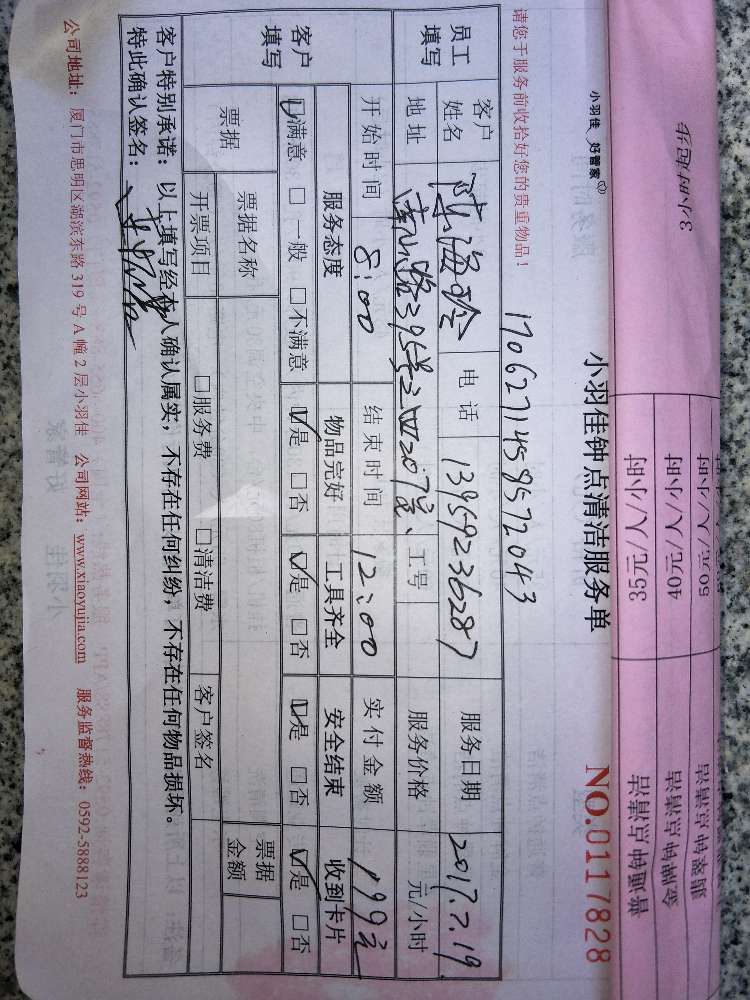 小羽佳 好管家
小羽佳钟点清洁服务单
NO.0117828
请您于服务前收拾好您的贵重物品！
1706271459572043
员工填写
客户姓名 陈海玲 电话 13959236287 服务日期 2017.7.19
地址 395号 207室 工号 服务价格 元/小时
客户填写
开始时间 8:00 结束时间 12:00 实付金额 199元
服务态度 物品完好 工具齐全 安全结束 收到卡片
☑满意 □一般 □不满意 ☑是 □否 ☑是 □否 ☑是 □否 ☑是 □否
票据 票据名称 票据金额
开票项目 □服务费 □清洁费 客户签名
客户特别承诺：以上填写经本人确认属实，不存在任何纠纷，不存在任何物品损坏。
特此确认签名：
公司地址：厦门市思明区湖滨东路 319 号 A 幢 2 层小羽佳 公司网站：www.xiaoyujia.com 服务监督热线：0592-5888123
3小时起

普通钟点清洁 35元/人/小时
40元/人/小时
50元/人/小时